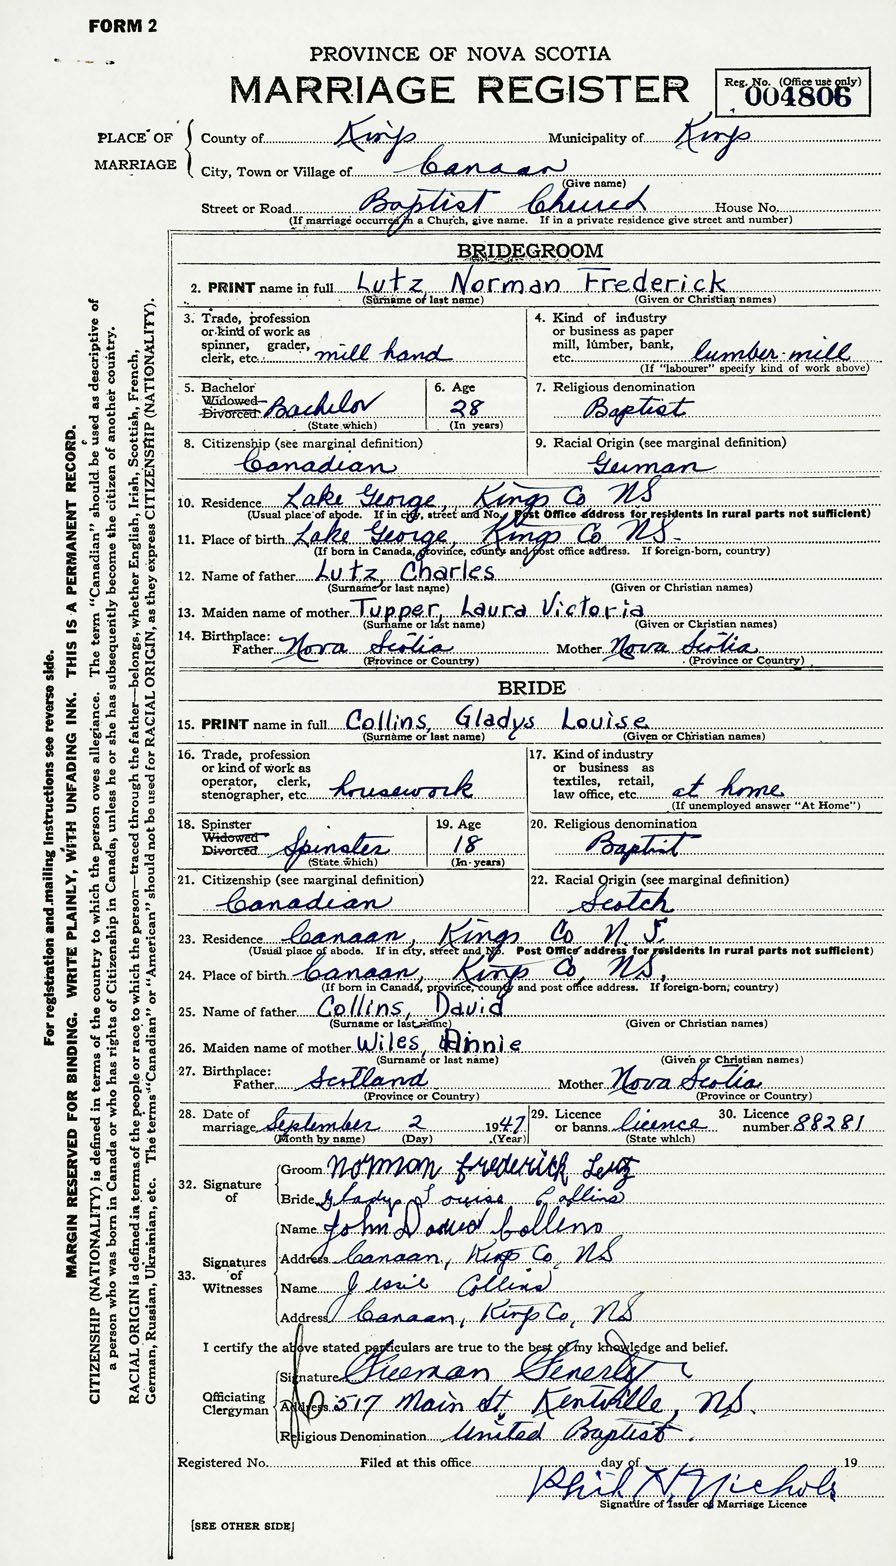 FORM 2
PROVINCE OF NOVA SCOTIA
MARRIAGE REGISTER
Reg. No. (Office use only)
004806
PLACE OF MARRIAGE
County of Kings Municipality of Kings
City, Town or Village of Canaan
(Give name)
Street or Road Baptist Church House No.
(If marriage occurred in a Church, give name. If in a private residence give street and number)
BRIDEGROOM
2. PRINT name in full Lutz, Norman Frederick
(Surname or last name) (Given or Christian names)
3. Trade, profession or kind of work as spinner, grader, clerk, etc. mill hand
4. Kind of industry or business as paper mill, lumber, bank, etc. lumber mill
(If "labourer" specify kind of work above)
5. Bachelor Widowed Divorced Bachelor
(State which)
6. Age 28
(In years)
7. Religious denomination Baptist
8. Citizenship (see marginal definition) Canadian
9. Racial Origin (see marginal definition) German
10. Residence Lake George, Kings Co NS
(Usual place of abode. If in city, street and No. Post Office address for residents in rural parts not sufficient)
11. Place of birth Lake George, Kings Co NS.
(If born in Canada, province, county and post office address. If foreign-born, country)
12. Name of father Lutz, Charles
(Surname or last name) (Given or Christian names)
13. Maiden name of mother Tupper, Laura Victoria
(Surname or last name) (Given or Christian names)
14. Birthplace: Father Nova Scotia Mother Nova Scotia
(Province or Country) (Province or Country)
BRIDE
15. PRINT name in full Collins, Gladys Louise
(Surname or last name) (Given or Christian names)
16. Trade, profession or kind of work as operator, clerk, stenographer, etc. housework
17. Kind of industry or business as textiles, retail, law office, etc. at home
(If unemployed answer "At Home")
18. Spinster Widowed Divorced Spinster
(State which)
19. Age 18
(In years)
20. Religious denomination Baptist
21. Citizenship (see marginal definition) Canadian
22. Racial Origin (see marginal definition) Scotch
23. Residence Canaan, Kings Co N.S.
(Usual place of abode. If in city, street and No. Post Office address for residents in rural parts not sufficient)
24. Place of birth Canaan, Kings Co, NS.
(If born in Canada, province, county and post office address. If foreign-born; country)
25. Name of father Collins, David
(Surname or last name) (Given or Christian names)
26. Maiden name of mother Wiles, Annie
(Surname or last name) (Given or Christian names)
27. Birthplace: Father Scotland Mother Nova Scotia
(Province or Country) (Province or Country)
28. Date of marriage September 2 1947
(Month by name) (Day) (Year)
29. Licence or banns licence
(State which)
30. Licence number 88281
32. Signature of
Groom Norman Frederick Lutz
Bride Gladys Louise Collins
33. Signatures of Witnesses
Name John David Collins
Address Canaan, Kings Co, NS
Name Jessie Collins
Address Canaan, Kings Co, NS
I certify the above stated particulars are true to the best of my knowledge and belief.
Officiating Clergyman
Signature Freeman Fenerty
Address 517 Main St, Kentville, NS.
Religious Denomination United Baptist.
Registered No. Filed at this office day of 19
Phil H. Nichols
Signature of Issuer of Marriage Licence
[SEE OTHER SIDE]
For registration and mailing instructions see reverse side.
MARGIN RESERVED FOR BINDING. WRITE PLAINLY, WITH UNFADING INK. THIS IS A PERMANENT RECORD.
CITIZENSHIP (NATIONALITY) is defined in terms of the country to which the person owes allegiance. The term "Canadian" should be used as descriptive of
a person who was born in Canada or who has rights of Citizenship in Canada, unless he or she has subsequently become the citizen of another country.
RACIAL ORIGIN is defined in terms of the people or race to which the person—traced through the father—belongs, whether English, Irish, Scottish, French,
German, Russian, Ukrainian, etc. The terms "Canadian" or "American" should not be used for RACIAL ORIGIN, as they express CITIZENSHIP (NATIONALITY).